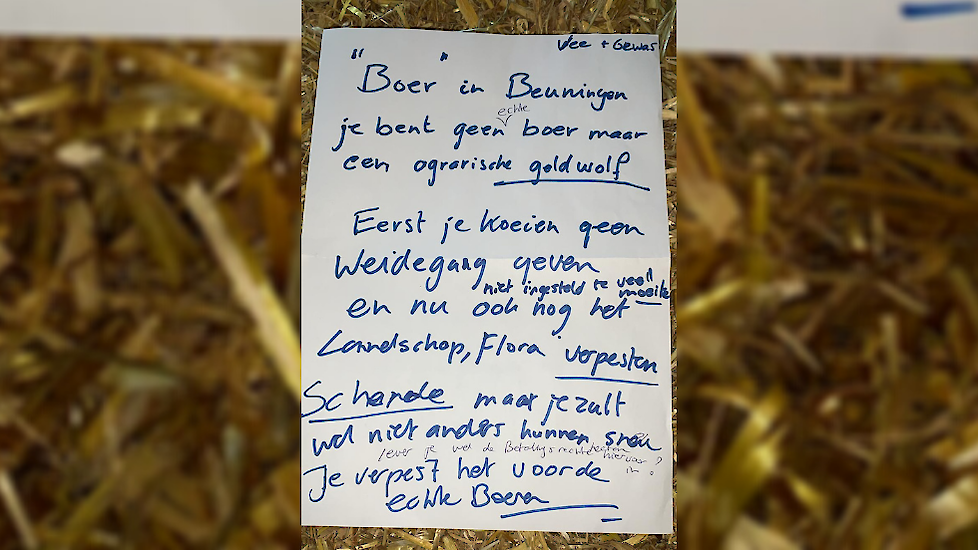 Vee + Gewas
"Boer" in Beuningen
echte
je bent geen boer maar
een agrarische geldwolf
Eerst je koeien geen
Weidegang geven
niet ingesteld te veel"
moeite
en nu ook nog het
Landschap, Flora verpesten
Schande maar je zult
wel niet anders kunnen
lever je wel de Betalingsrechten
hiervoor in ?
Je verpest het voor de
echte Boeren